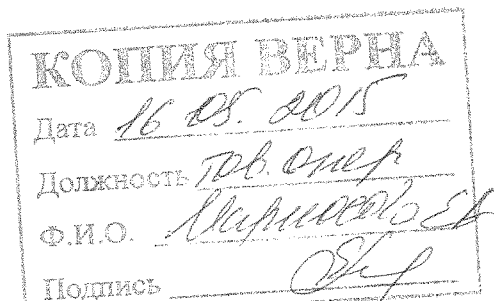 КОПИЯ ВЕРНА
Дата 16 05. 2015
Должность тов. опер
Ф.И.О.
Подпись